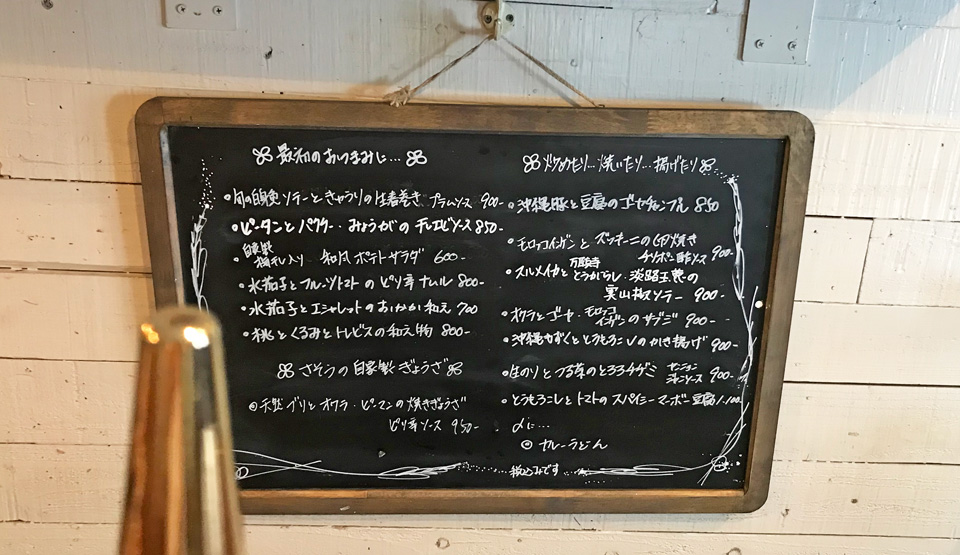 最初のおつまみに…
・旬の白身魚ソテーときゅうりの生春巻き プラムソース 900-
・ピータンとパクチー・みょうがの チリエビソース 850-
・自家製梅干し入り 和風ポテトサラダ 600-
・水茄子とフルーツトマトの ピリ辛ナムル 800-
・水茄子とエシャレットのおかか和え 700
・桃とくるみとトレビスの和え物 800-
さそうの自家製ぎょうざ
◎天然ブリとオクラ・ピーマンの焼きぎょうざ
ピリ辛ソース 950-
炒めたり…焼いたり…揚げたり
・沖縄豚と豆腐のゴーヤチャンプル 850
・モロッコインゲンと ズッキーニの卵焼き
チリポン酢ソース 900-
・スルメイカと万願寺とうがらし・淡路玉葱の
実山椒ソテー 900-
・オクラとゴーヤ・モロッコインゲンのサブジ 900-
・沖縄もずくととうもろこしのかき揚げ 900-
900-
・とうもろこしとトマトのスパイシーマーボー豆腐 1,100-
〆に…
◎カレーうどん
税込みです